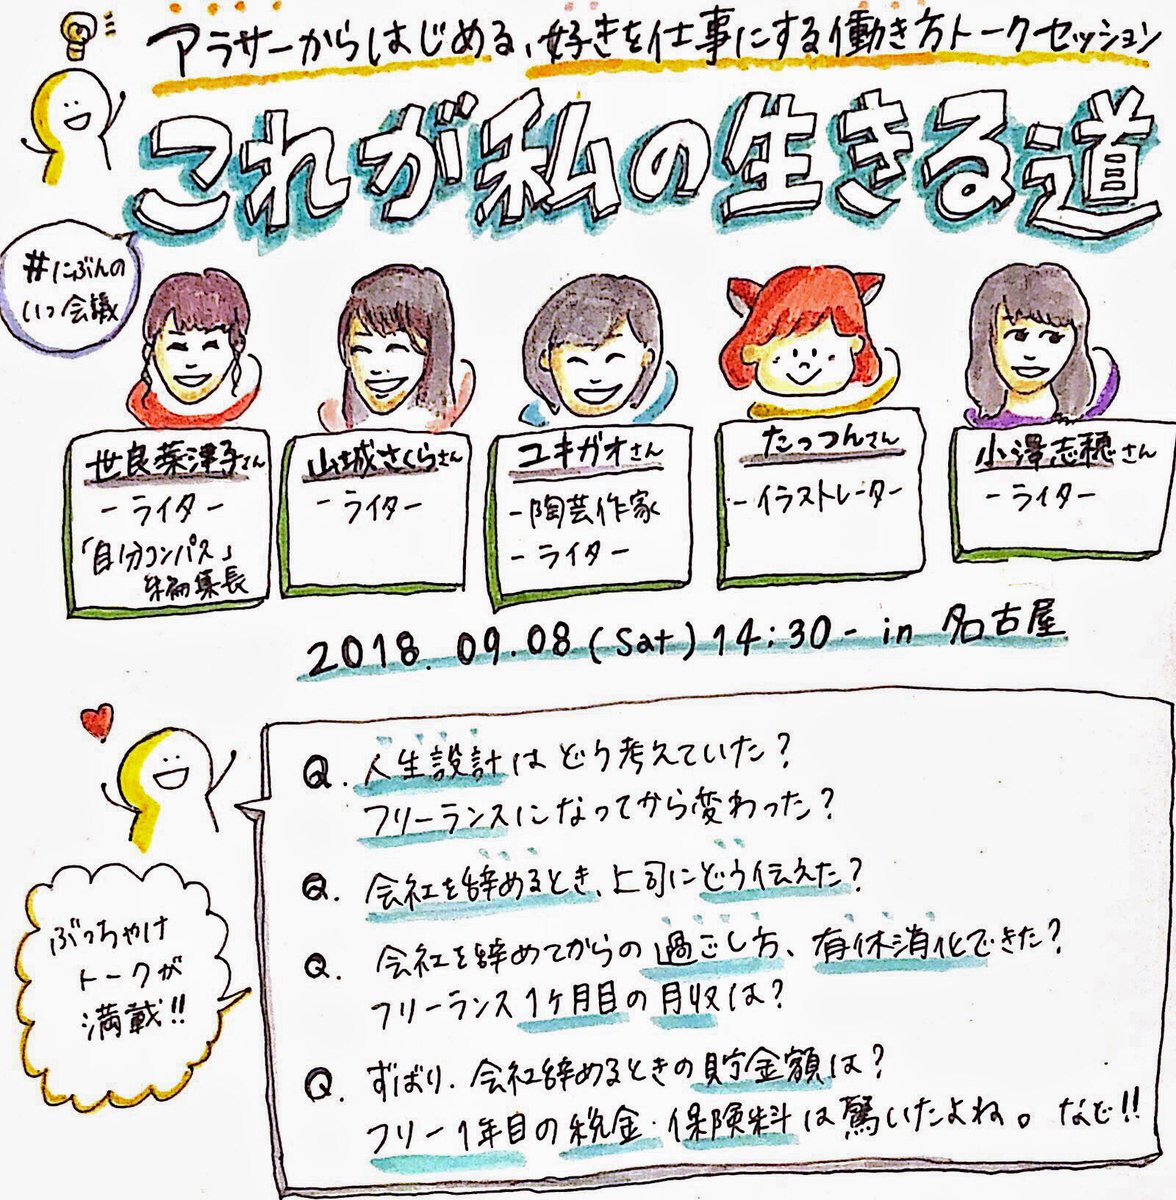 アラサーからはじめる、好きを仕事にする働き方トークセッション
これが私の生きる道
#にぶんの
いっ会議
世良菜津子さん
- ライター -
「自分コンパス」
編集長
山城さくらさん
- ライター
ユキガオさん
- 陶芸作家
- ライター
たっつんさん
- イラストレーター
小澤志穂さん
- ライター
2018.09.08(Sat)14:30- in 名古屋
Q. 人生設計はどう考えていた?
フリーランスになってから変わった?
Q. 会社を辞めるとき、上司にどう伝えた?
Q. 会社を辞めてからの過ごし方、有休消化できた?
フリーランス1ヶ月目の月収は?
Q. ずばり、会社辞めるときの貯金額は?
フリー1年目の税金・保険料は驚いたよね。など!!
ぶっちゃけ
トークが
満載!!